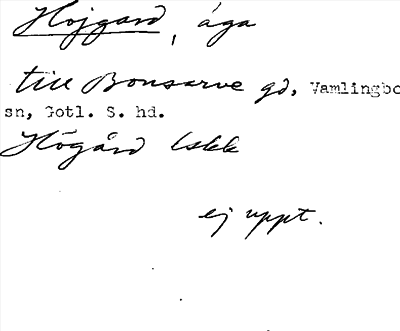 Hojgard, äga
till Bonsarve gd, Vamlingbo
sn, Gotl. S. hd.
Högård Iskk
ej uppt.